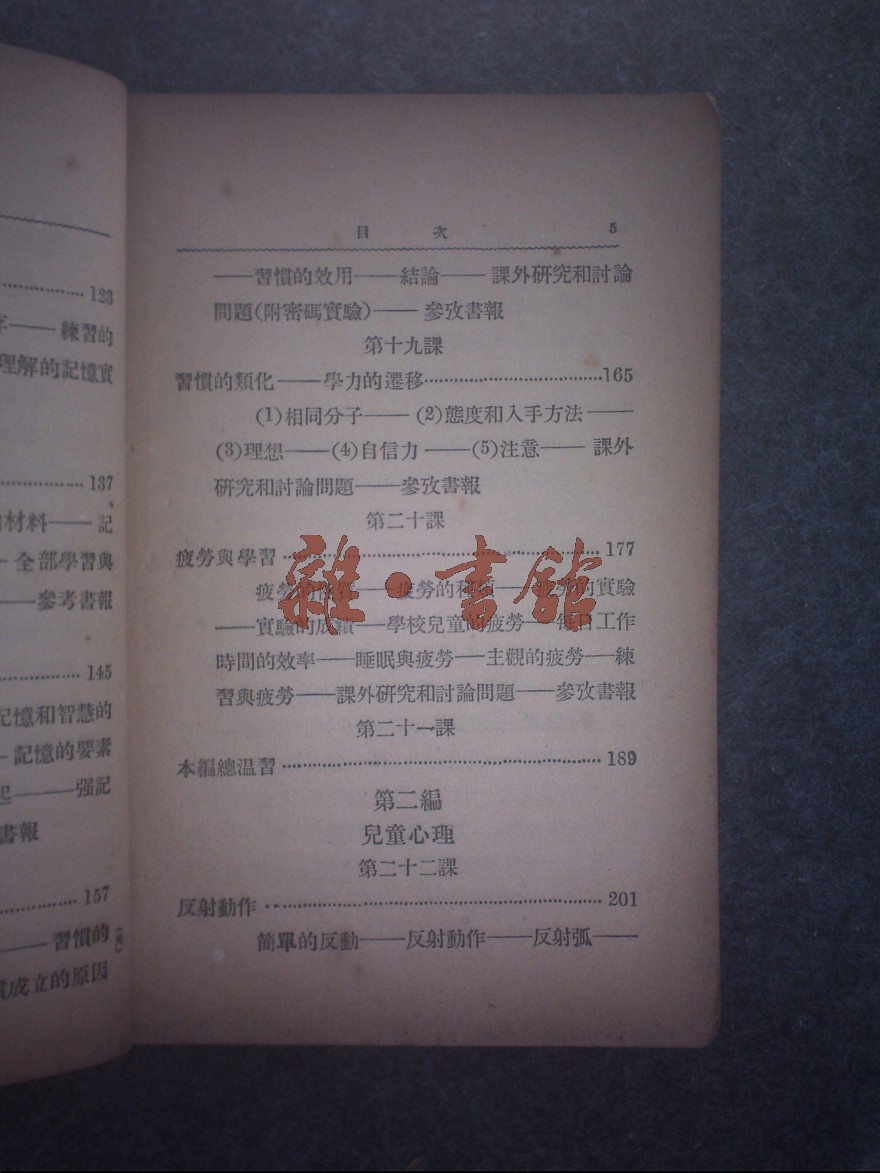 123
練習的
理解的記憶實
137
材料——記
全部學習與
——參考書報
145
記憶和智慧的
記憶的要素
——强記
書報
157
——習慣的
慣成立的原因
目 次 5
——習慣的效用——結論——課外研究和討論
問題(附密碼實驗)——參攷書報
第十九課
習慣的類化——學力的遷移……165
(1)相同分子——(2)態度和入手方法——
(3)理想——(4)自信力——(5)注意——課外
研究和討論問題——參攷書報
第二十課
疲勞與學習……177
疲勞的性質——疲勞的種類——疲勞的實驗
——實驗的成績——學校兒童的疲勞——每日工作
時間的效率——睡眠與疲勞——主觀的疲勞——練
習與疲勞——課外研究和討論問題——參攷書報
第二十一課
本編總温習……189
第二編
兒童心理
第二十二課
反射動作……201
簡單的反動——反射動作——反射弧——
雜·書館